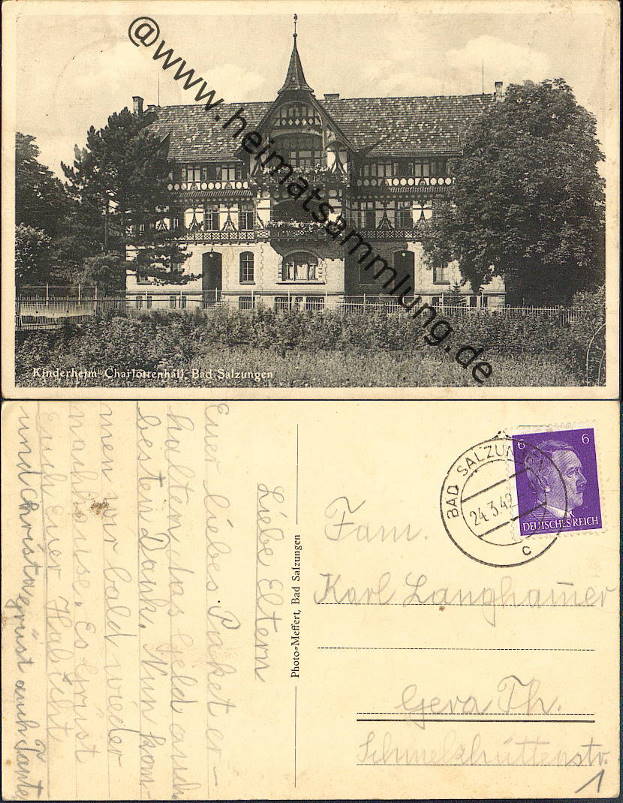 @www.heimatsammlung.de
Kinderheim Charlottenhall, Bad Salzungen
Liebe Eltern
Euer liebes Paket er-
halten, das Geld auch
besten Dank. Nun kom-
men wir bald wieder
nachhause. Es grüst
Euch Euer
und Christa grüst auch Tante
Photo=Meffert, Bad Salzungen
BAD SALZUNGEN
24.3.42
c
6 6
DEUTSCHES REICH
Fam.
Karl Langhammer
Gera Th.
Schmelzhüttenstr.
1